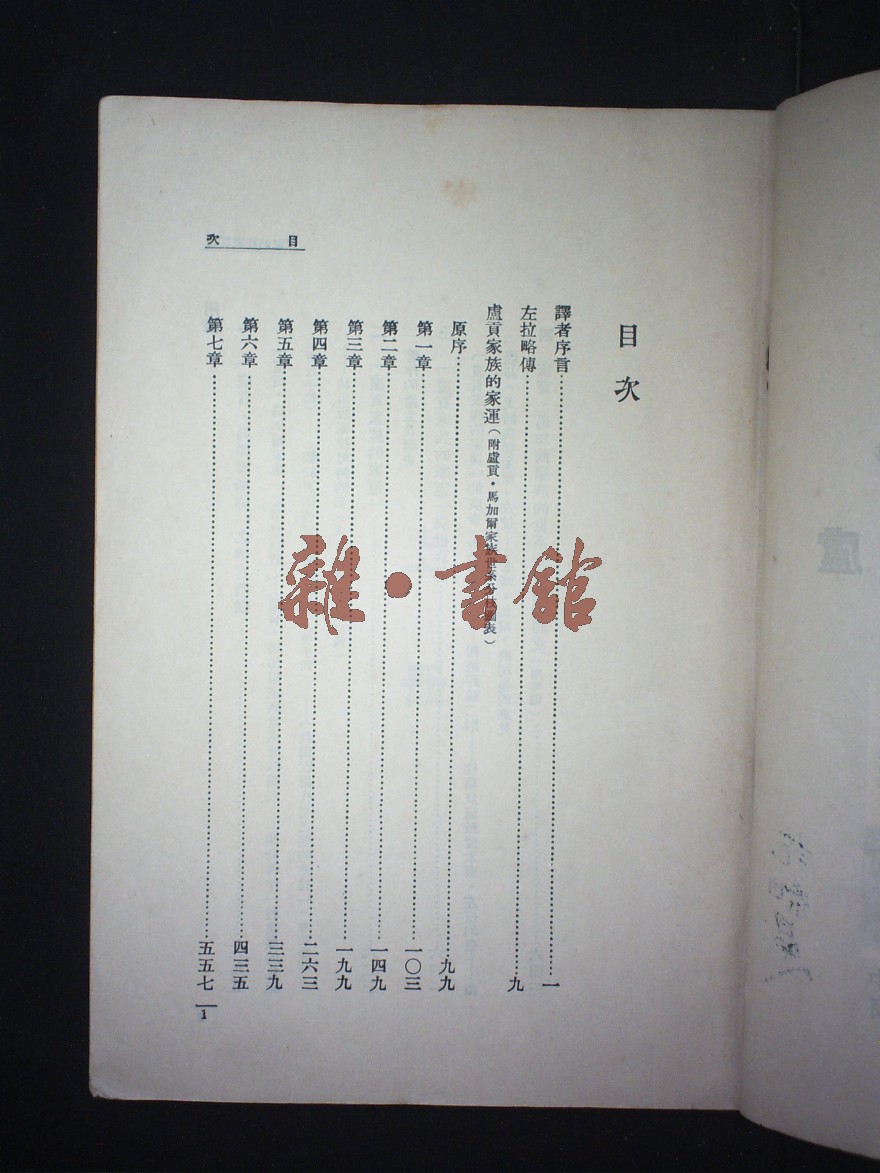 目次
譯者序言……一
左拉略傳……九
盧貢家族的家運（附盧貢・馬加爾家族世系分枝圖表）
原序……九九
第一章……一〇三
第二章……一四九
第三章……一九九
第四章……二六三
第五章……三三九
第六章……四三五
第七章……五五七
目次
1
雜・書館
盧